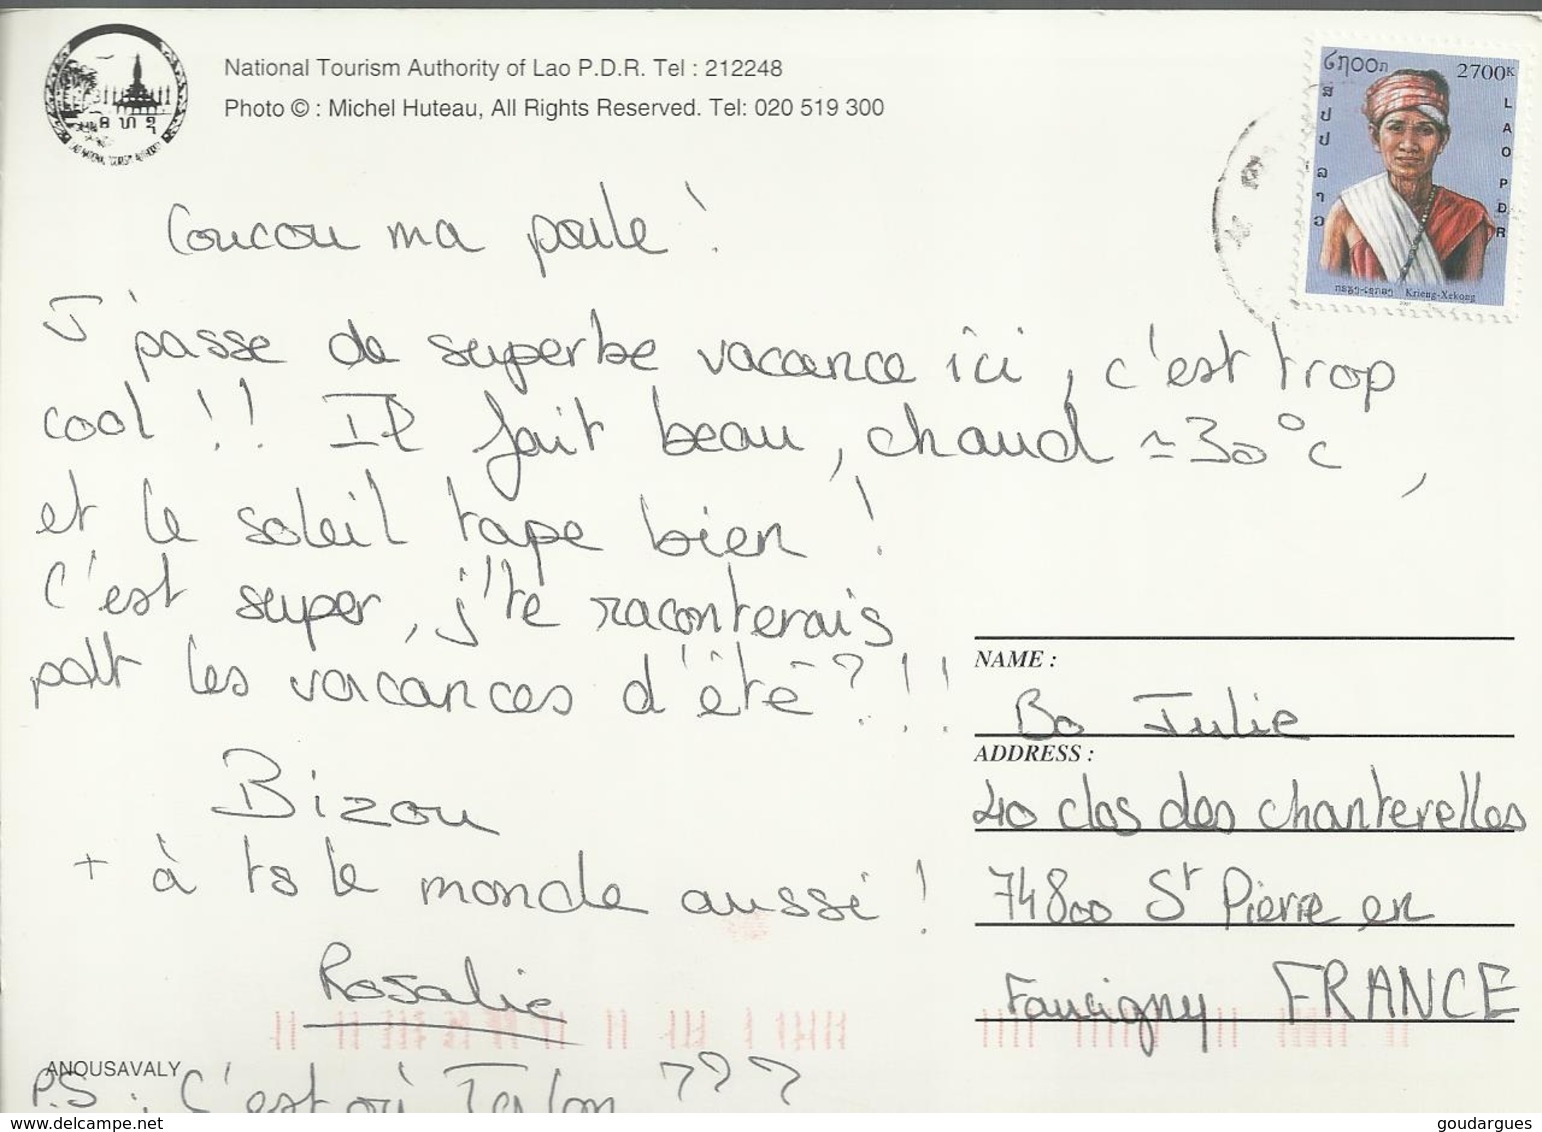 National Tourism Authority of Lao P.D.R. Tel : 212248
Photo © : Michel Huteau, All Rights Reserved. Tel: 020 519 300
ອ ທ ຊ
LAO NATIONAL TOURISM AUTHORITY
໒໗໐໐ກ
2700K
ສ ປ ປ ລ າ ວ
LAO PDR
Krieng-Xekong
Coucou ma poule !
J'passe de superbe vacance ici, c'est trop
cool !! Il fait beau, chaud ≃30°c,
et le soleil tape bien !
C'est super, j'te raconterais
pdt les vacances d'été ?!!
Bizou
+ à ts le monde aussi !
Rosalie
ANOUSAVALY
P.S : C'est où Talon ???
NAME :
Bo Julie
ADDRESS :
40 clos des chanterelles
74800 St Pierre en
Faucigny FRANCE
www.delcampe.net
goudargues